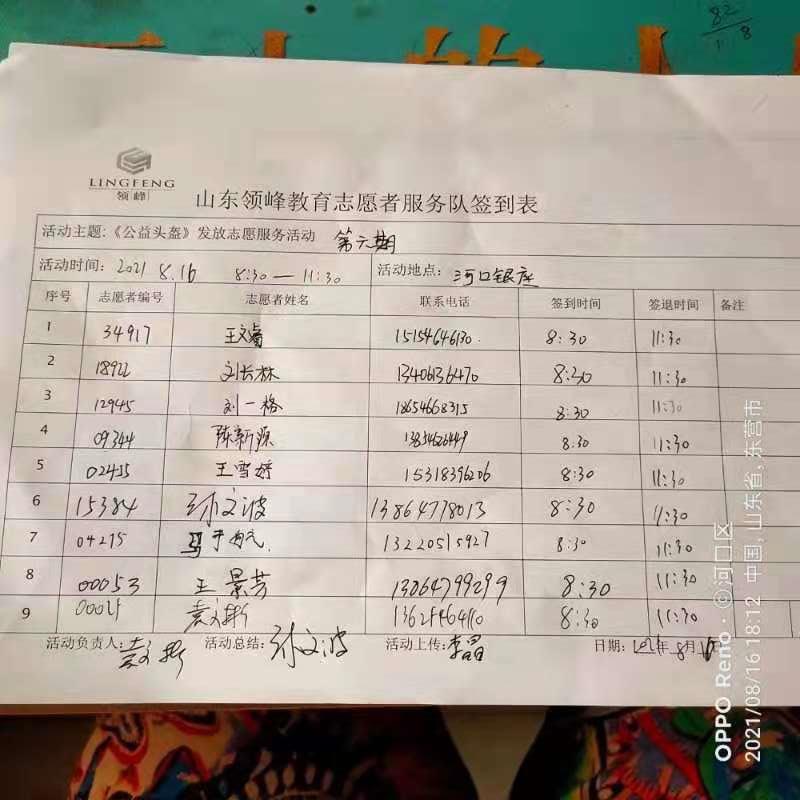 82
11 8
LINGFENG
领峰
山东领峰教育志愿者服务队签到表
活动主题:《公益头盔》发放志愿服务活动 第六期
活动时间: 2021 8.16 8:30 — 11:30 活动地点: 河口银座
序号 志愿者编号 志愿者姓名 联系电话 签到时间 签退时间 备注
1 34917 王文睿 15154646130 8:30 11:30
2 18922 刘长林 13406136470 8:30 11:30
3 12945 刘一格 18654668315 8:30 11:30
4 09344 陈新源 13854626449 8:30 11:30
5 02415 王雪婷 15318396206 8:30 11:30
6 15384 孙文波 13864778013 8:30 11:30
7 04215 13220515927 8:30 11:30
8 00053 王景芳 13064799299 8:30 11:30
9 8:30 11:30
活动负责人: 活动总结: 孙文波 活动上传: 李晶 日期: 2021年8月16
OPPO Reno · ©河口区
2021/08/16 18:12 中国, 山东省, 东营市